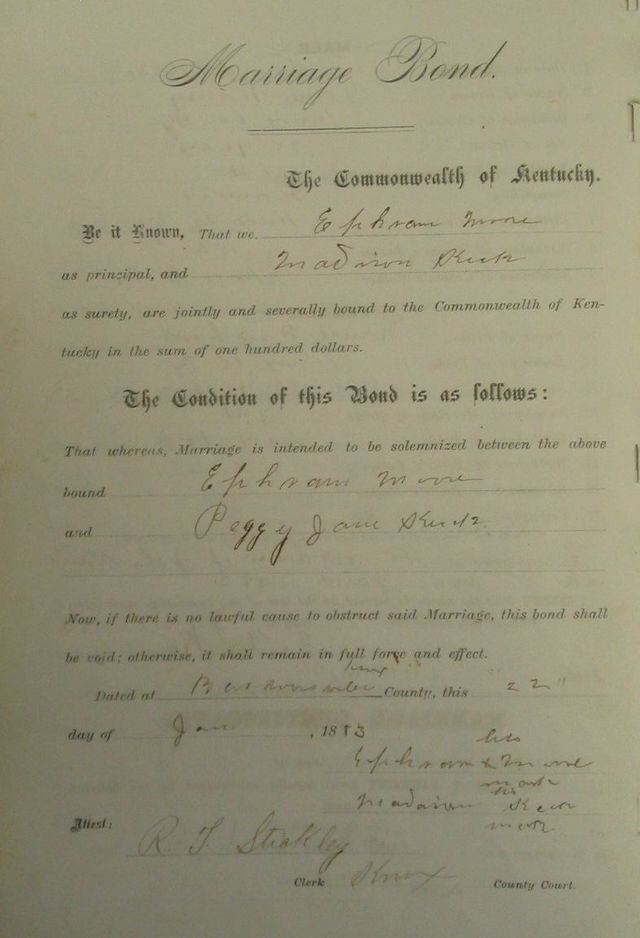 Marriage Bond.
The Commonwealth of Kentucky.
Be it Known, That we, Ephram Moore
as principal, and Madison
as surety, are jointly and severally bound to the Commonwealth of Ken-
tucky in the sum of one hundred dollars.
The Condition of this Bond is as follows:
That whereas, Marriage is intended to be solemnized between the above
bound Ephram Moore
and Peggy Jane
Now, if there is no lawful cause to obstruct said Marriage, this bond shall
be void; otherwise, it shall remain in full force and effect.
Knox
Dated at County, this 22"
day of , 18
his
Ephram x Moore
mark
his
Madison
mark
Attest:
R. T. Stickley
Clerk Knox County Court.